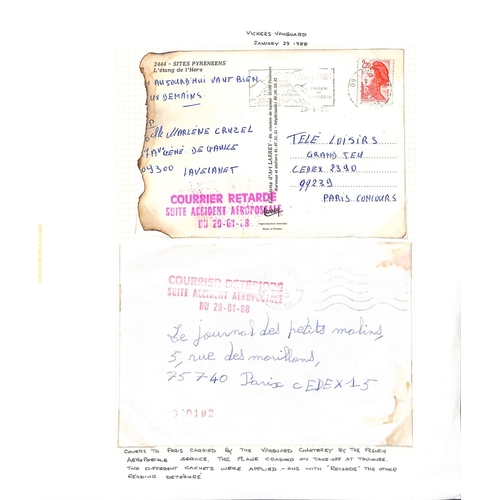 VICKERS VANGUARD
JANUARY 29 1988
2444 - SITES PYRENEENS
L'étang de l'Hers
AUJOURD'HUI VAUT BIEN
DEMAINS.
MARLÈNE CRUZEL
DE GAULLE
09300 LAVELANET
2,20
TÉLÉ LOISIRS
GRAND JEU
CEDEX 2390
99239
PARIS CONCOURS
COURRIER RETARDE
SUITE ACCIDENT AEROPOSTALE
DU 29-01-88
COURRIER DETERIORE
SUITE ACCIDENT AEROPOSTALE
DU 29-01-88
Le journal des petits malins,
5, rue des morillons,
75740 Paris CEDEX 15
COVERS TO PARIS CARRIED BY THE VANGUARD CHARTERED BY THE FRENCH
AEROPOSTALE SERVICE. THE PLANE CRASHED ON TAKE-OFF AT TOULOUSE.
TWO DIFFERENT CACHETS WERE APPLIED - ONE WITH "RETARDE" THE OTHER
READING DETERIORE